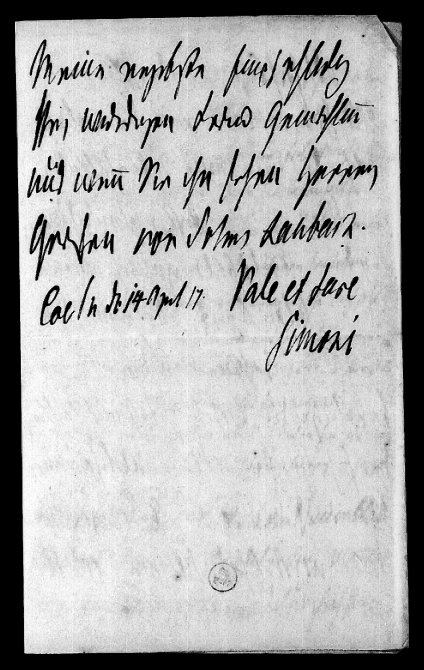 Meine ergebste Empfehlung
Ihrer würdigen Frau Gemahlin
und wenn Sie ihn sehen Herren
Grafen von Solms Laubach.
Coeln d 14 April 17. Vale et fave
Simoni